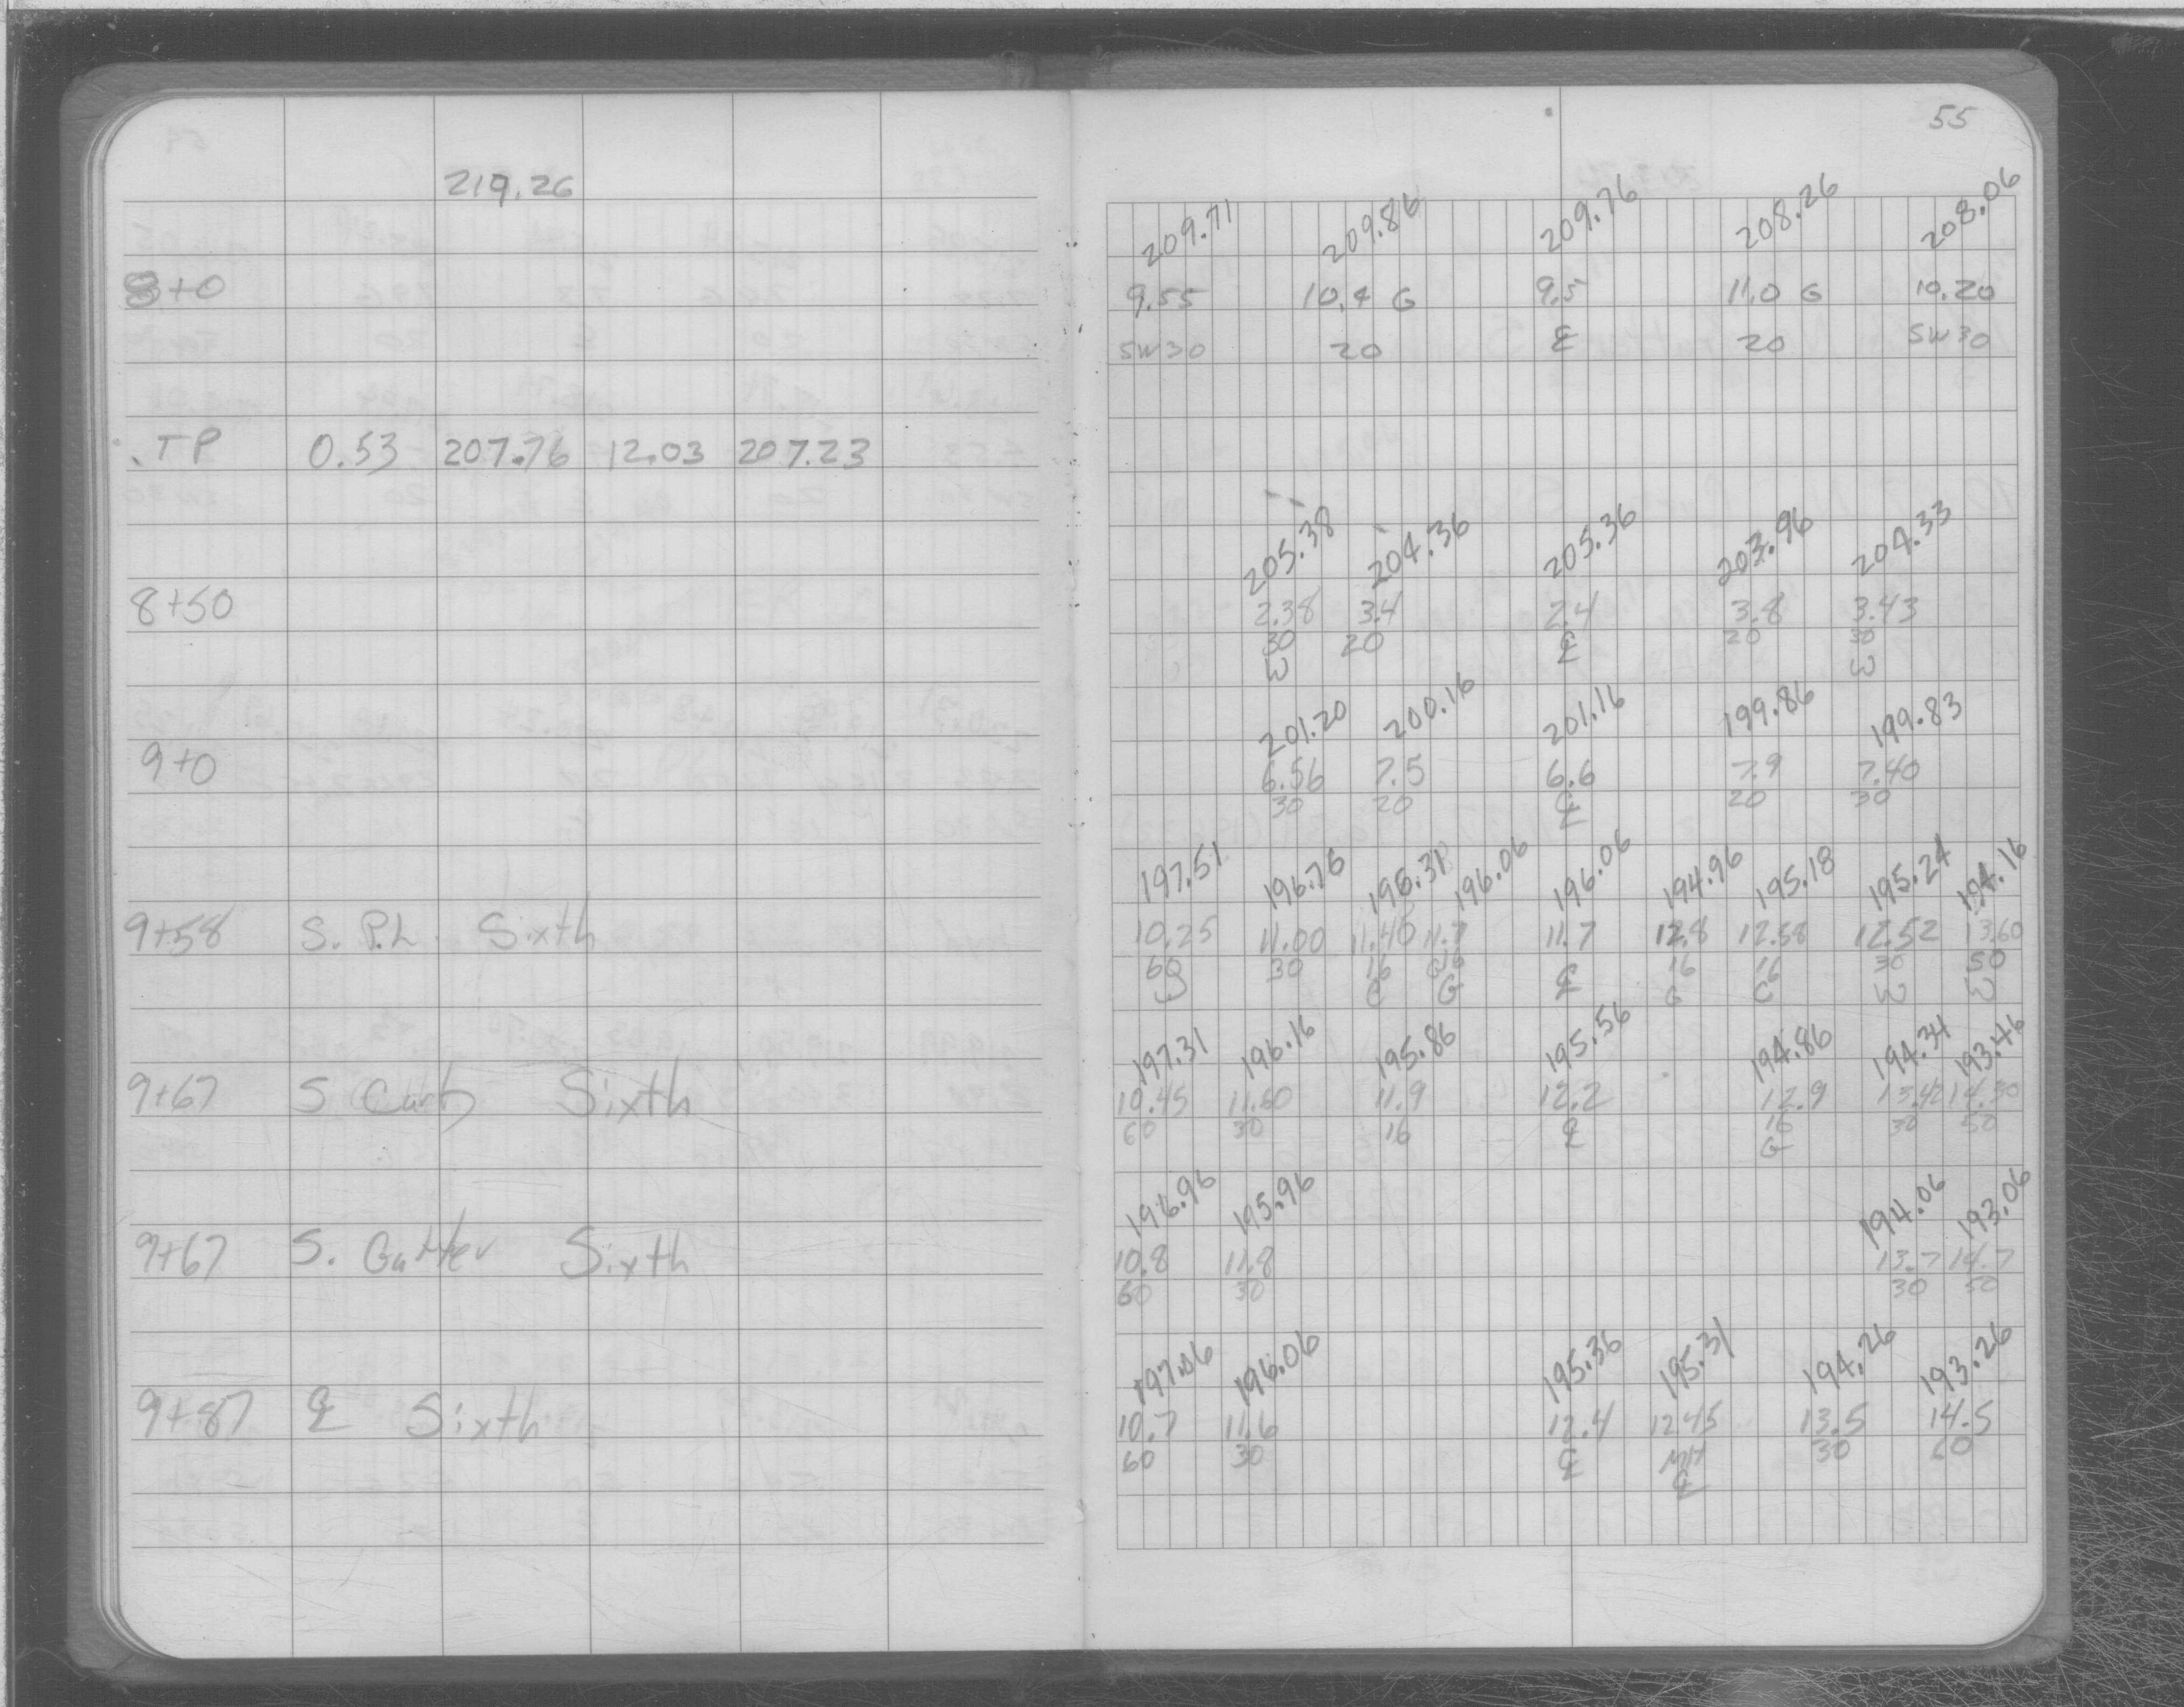 55
219.26
209.71 209.86 209.76 208.26 208.06
8+0 9.55 10.4 G 9.5 11.0 G 10.20
SW30 20 ℄ 20 SW30
TP 0.53 207.76 12.03 207.23
205.38 204.36 205.36 203.96 204.33
8+50 2.38 3.4 2.4 3.8 3.43
30 20 ℄ 20 30
W W
201.20 200.16 201.16 199.86 199.83
9+0 6.56 7.5 6.6 7.9 7.40
30 20 ℄ 20 30
197.51 196.76 196.31 196.06 196.06 194.96 195.18 195.24 194.16
9+58 S. P.L. Sixth 10.25 11.00 11.40 11.7 11.7 12.8 12.58 12.52 13.60
60 30 16 16 ℄ 16 16 30 50
W C G G C W W
197.31 196.16 195.86 195.56 194.86 194.34 193.46
9+67 S Curb Sixth 10.45 11.60 11.9 12.2 12.9 13.42 14.30
60 30 16 ℄ 16 30 50
G
196.96 195.96 194.06 193.06
9+67 S. Gutter Sixth 10.8 11.8 13.7 14.7
60 30 30 50
197.06 196.06 195.36 195.31 194.26 193.26
9+87 ℄ Sixth 10.7 11.6 12.4 12.45 13.5 14.5
60 30 ℄ MH 30 60
℄